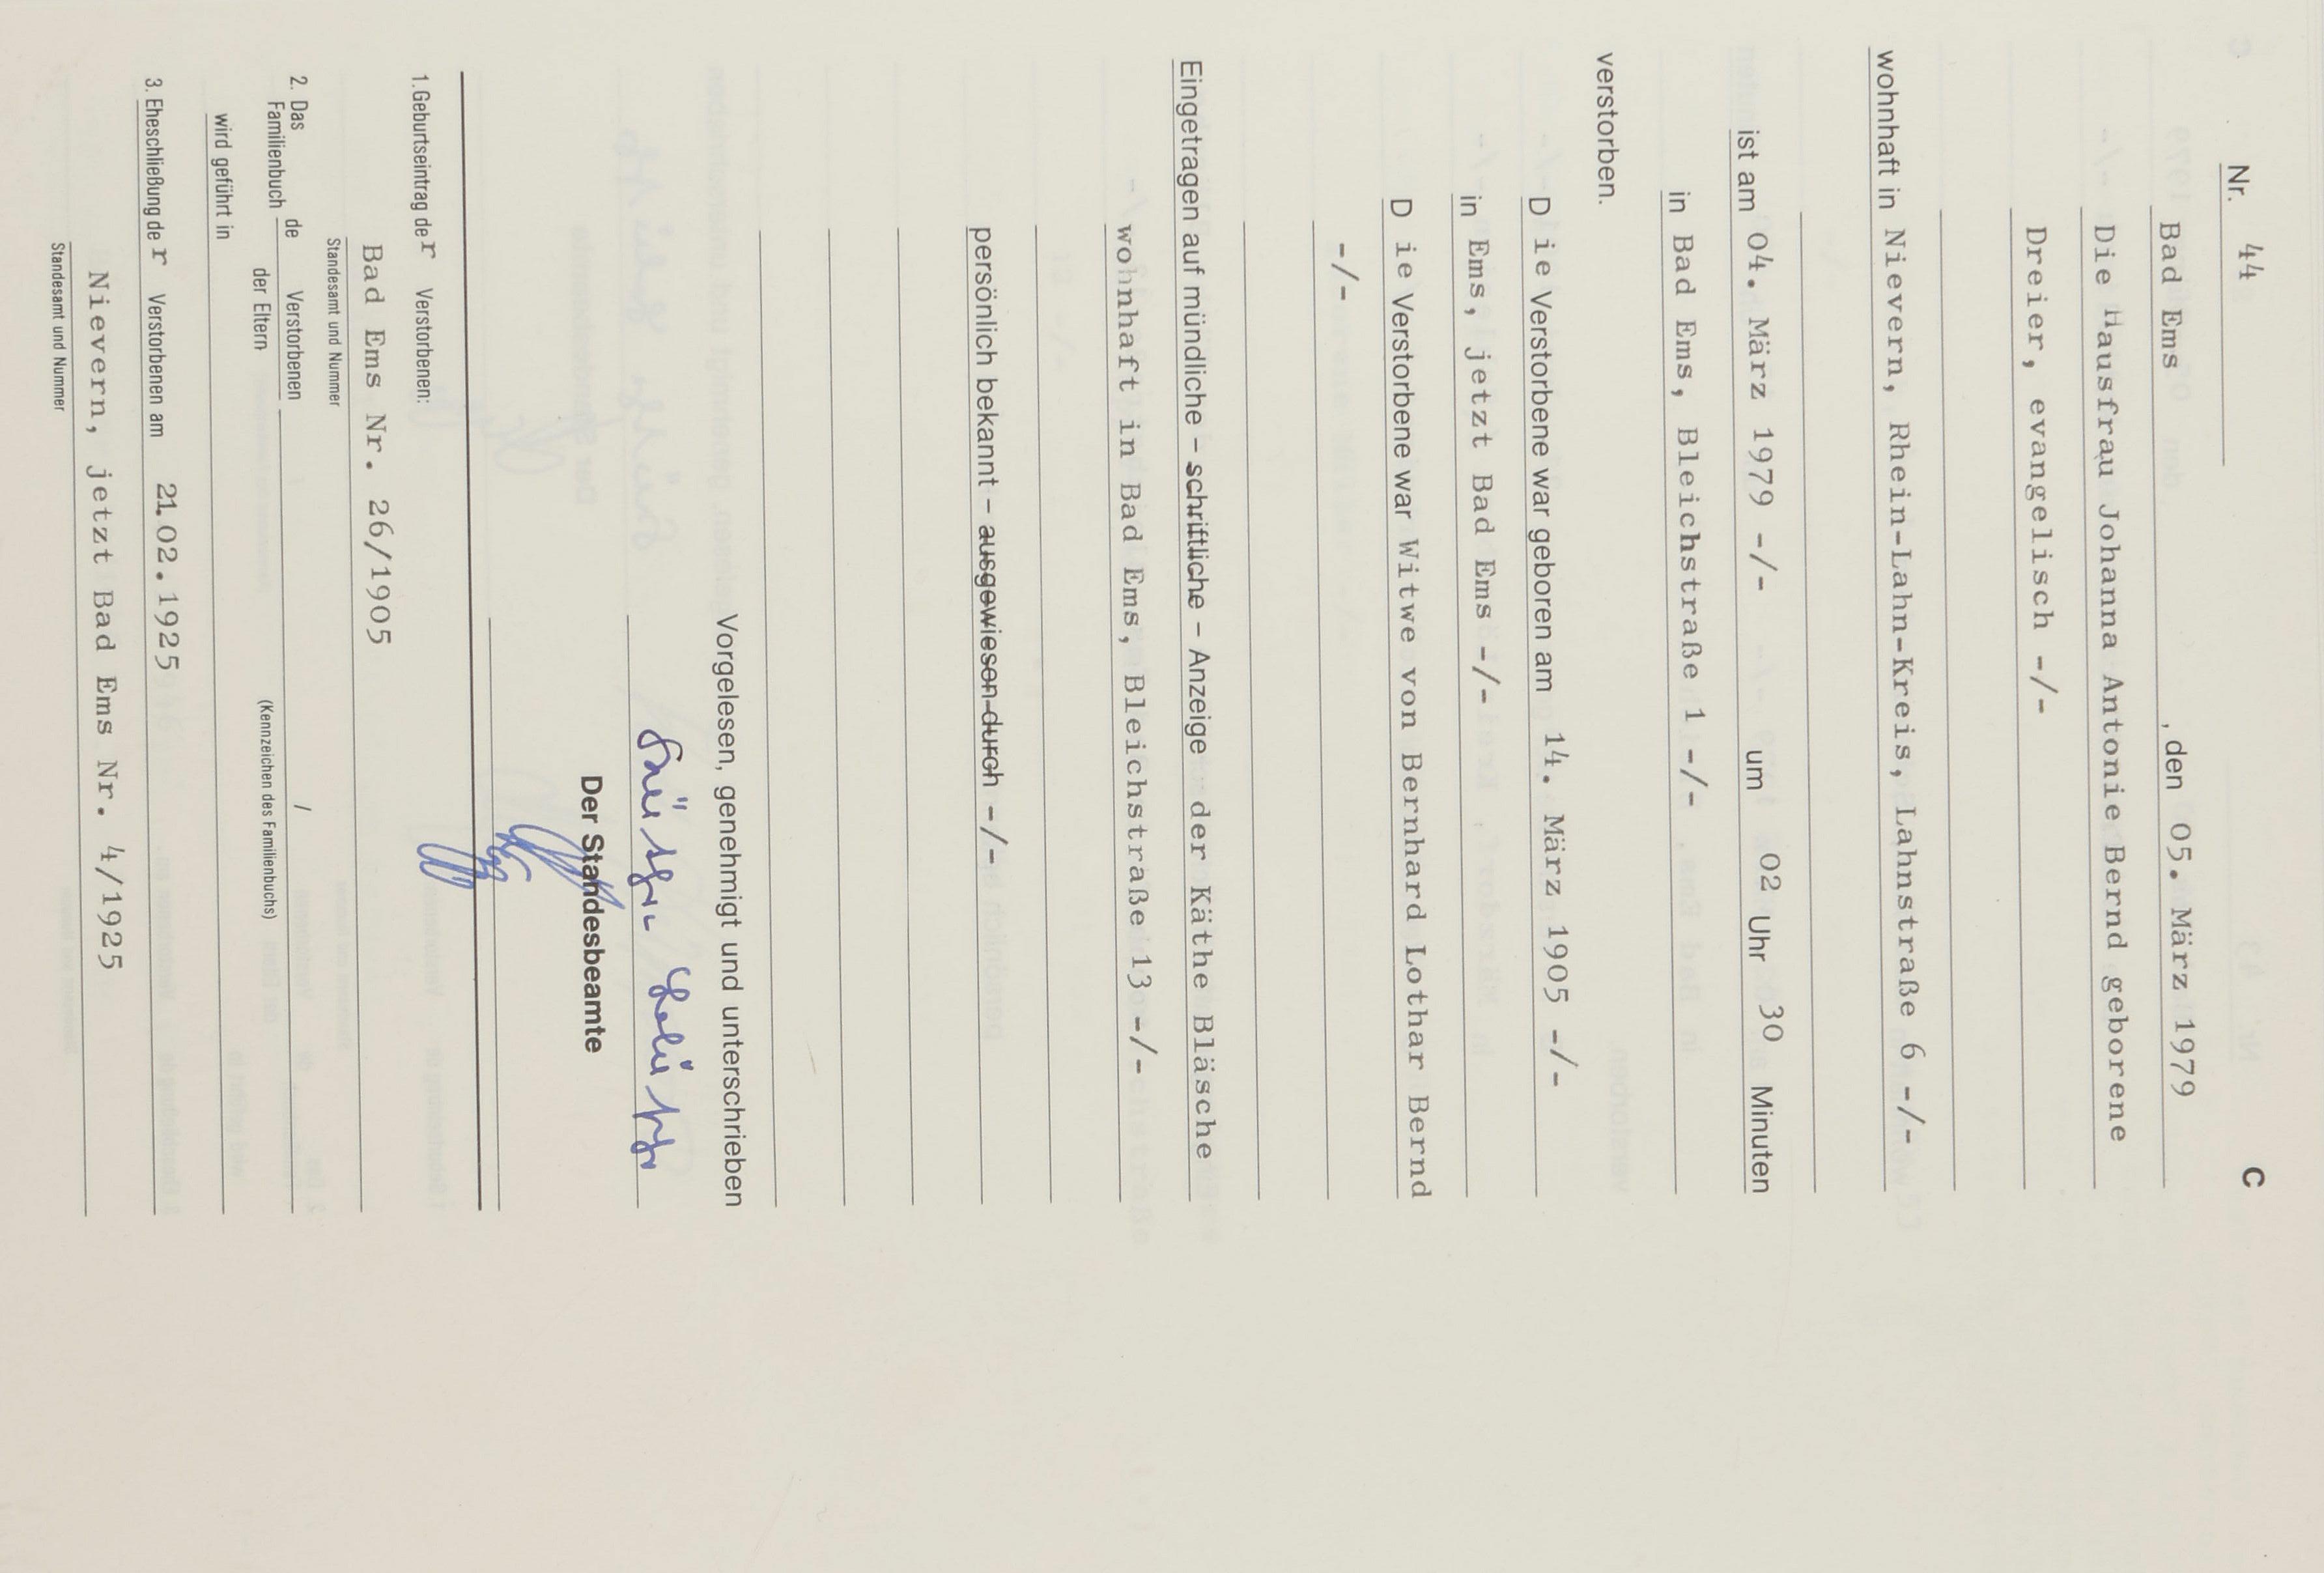 C
Nr. 44
Bad Ems, den 05. März 1979
Die Hausfrau Johanna Antonie Bernd geborene
Dreier, evangelisch -/-
wohnhaft in Nievern, Rhein-Lahn-Kreis, Lahnstraße 6 -/-
ist am 04. März 1979 -/- um 02 Uhr 30 Minuten
in Bad Ems, Bleichstraße 1 -/-
verstorben.
D ie Verstorbene war geboren am 14. März 1905 -/-
in Ems, jetzt Bad Ems -/-
D ie Verstorbene war Witwe von Bernhard Lothar Bernd
-/-
Eingetragen auf mündliche – schriftliche – Anzeige der Käthe Bläsche
wohnhaft in Bad Ems, Bleichstraße 13 -/-
persönlich bekannt – ausgewiesen durch -/-
Vorgelesen, genehmigt und unterschrieben
Der Standesbeamte
1. Geburtseintrag de r Verstorbenen:
Bad Ems Nr. 26/1905
Standesamt und Nummer
2. Das Familienbuch de Verstorbenen /
der Eltern (Kennzeichen des Familienbuchs)
wird geführt in
3. Eheschließung de r Verstorbenen am 21.02.1925
Nievern, jetzt Bad Ems Nr. 4/1925
Standesamt und Nummer